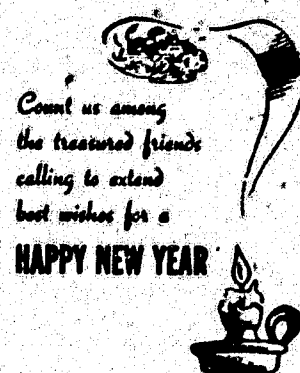 Count us among
the treasured friends
calling to extend
best wishes for a
HAPPY NEW YEAR